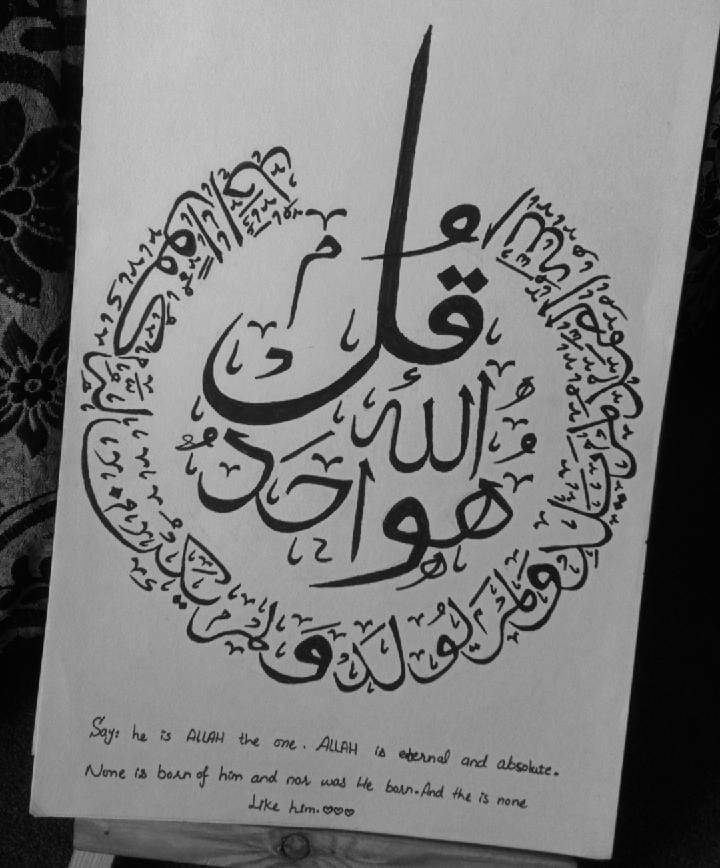 قل هو الله أحد
الله الصمد لم يلد ولم يولد ولم يكن له كفوا أحد
Say: he is ALLAH the one. ALLAH is eternal and absolute.
None is born of him and nor was He born. And the is none
Like him.♡♡♡